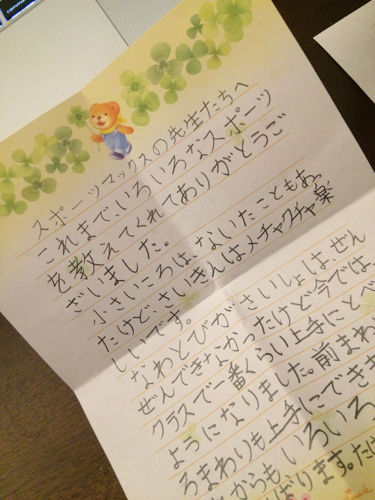 スポーツマックスの先生たちへ
これまで、いろいろなスポーツ
を教えてくれてありがとうご
ざいました。
小さいころは、ないたこともあっ
たけど、さいきんはメチャクチャ楽
しいです。
なわとびがさいしょは、ぜん
ぜんできなかったけど今では、
クラスで一番くらい上手にとべ
ようになりました。前まわ
ろまわりも上手にできま
からもいろいろ
ばります。たけ